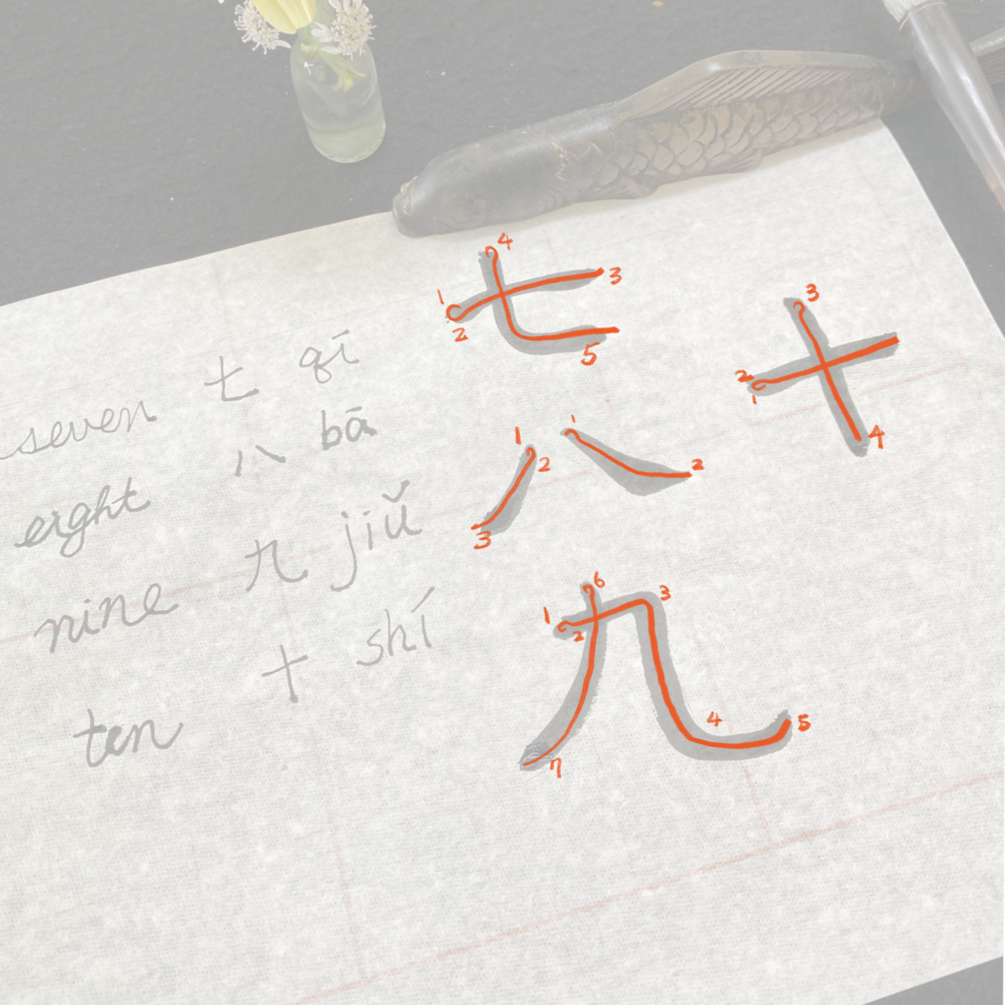 seven 七 qī
eight 八 bā
nine 九 jiǔ
ten 十 shí
七
1 2 3 4 5
十
1 2 3 4
八
1 2 3 1 2
九
1 2 3 4 5 6 7